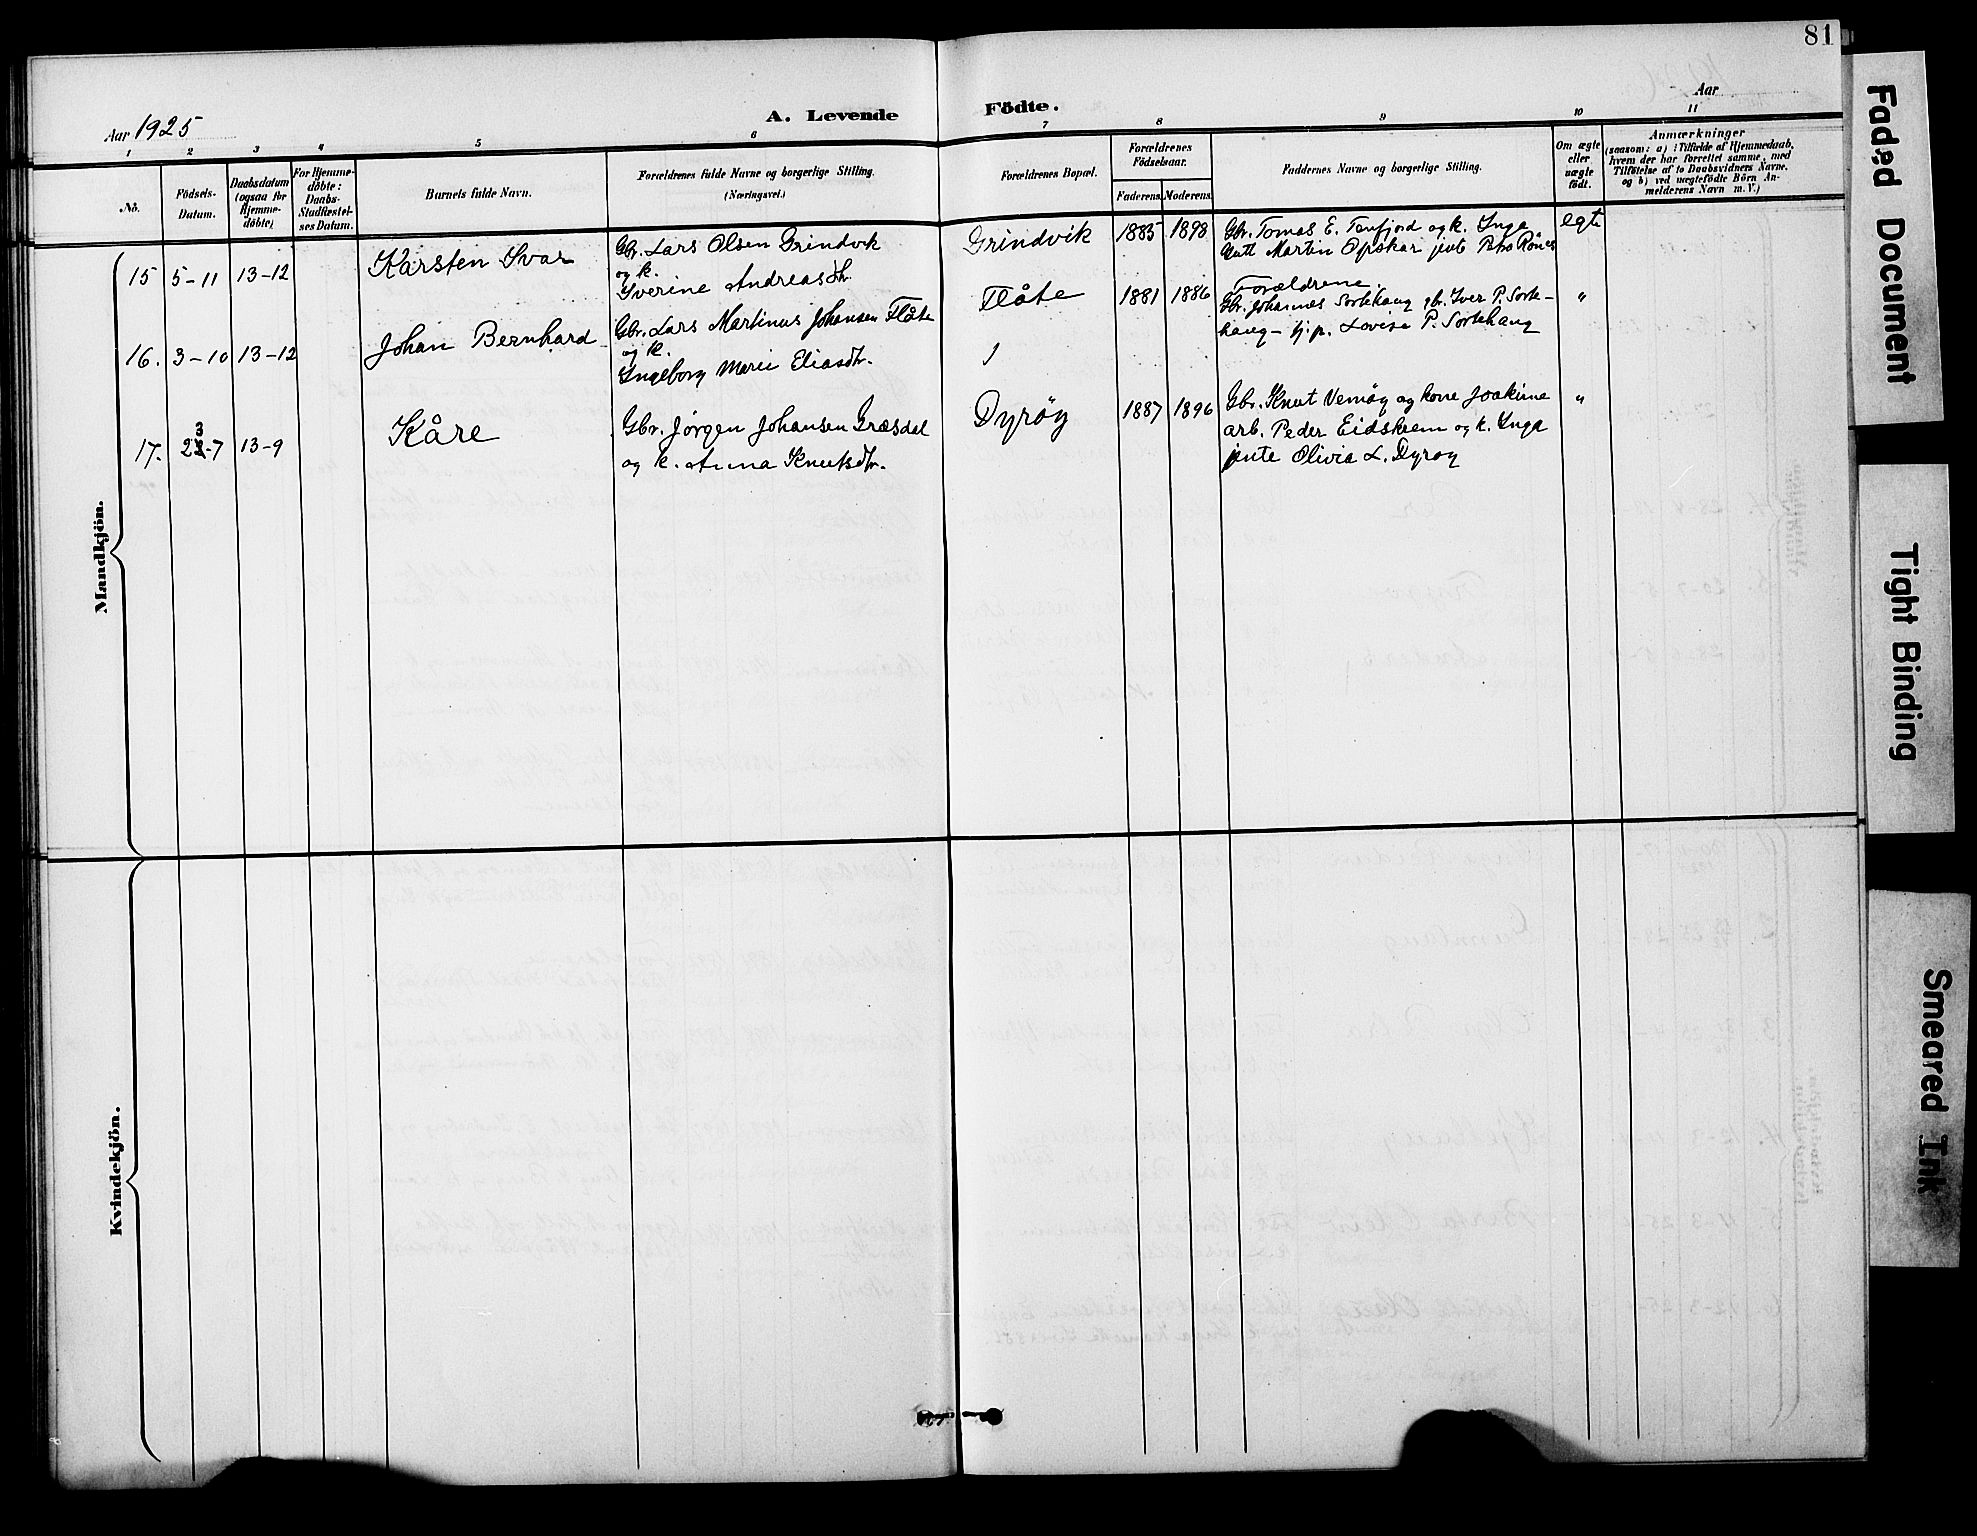 81
Aar 1925
A. Levende Födte.
Aar
1 2 3 4 5 6 7 8 9 10 11
No.
Födsels-
Datum.
Daabsdatum
(ogsaa for
Hjemme-
döbte)
For Hjemme-
döbte:
Daabs-
Stadfæstel-
ses Datum.
Barnets fulde Navn.
Forældrenes fulde Navne og borgerlige Stilling.
(Næringsvei.)
Forældrenes Bopæl.
Forældrenes
Födselsaar.
Faderens. Moderens.
Faddernes Navne og borgerlige Stilling.
Om ægte
eller
uægte
födt.
Anmærkninger
(saasom: a) i Tilfælde af Hjemmedaab,
hvem der har forrettet samme, med
Tilföielse af to Daabsvidners Navne.
og b) ved uægtefödte Börn An-
melderens Navn m. V.)
Mandkjön.
15 5-11 13-12 Karsten Ivar
Gbr. Lars Olsen Grindvik
og k.
Iverine Andreasdtr.
Grindvik 1885 1898
Gbr. Tomas E. Tenfjord og k. Inga
Gutt Martin Opskar jente Petra Rönes
egte
16. 3-10 13-12 Johan Bernhard
Gbr. Lars Martinus Johansen Flåte
og k.
Ingeborg Marie Eliasdtr.
Flåte 1881 1886
Forældrene.
Gbr. Johannes Sortehaug gbr. Iver P. Sorte-
haug - tj.p. Lovise P. Sortehaug
"
17. 23-7 13-9 Kåre
Gbr. Jørgen Johansen Græsdal
og k. Anna Knutsdtr.
Dyrøy 1887 1896
Gbr. Knut Vemøy og kone Joakime
arb. Peder Eidskrem og k. Inga
jente Olivia L. Dyrøy
"
Kvindekjön.
Faded Document
Tight Binding
Smeared Ink